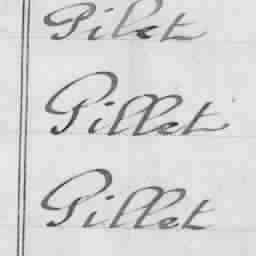 Pilet
Pillet
Pillet